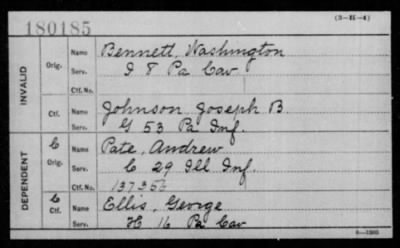 (3-H-4)
180185
INVALID
Orig.
Name Bennett, Washington
Serv. I 8 Pa Cav
Ctf. No.
Ctf.
Name Johnson Joseph B.
Serv. G 53 Pa Inf.
DEPENDENT
C Orig.
Name Pate, Andrew
Serv. C 29 Ill Inf.
Ctf. No. 137356
C Ctf.
Name Ellis, George
Serv. H 16 Pa Cav